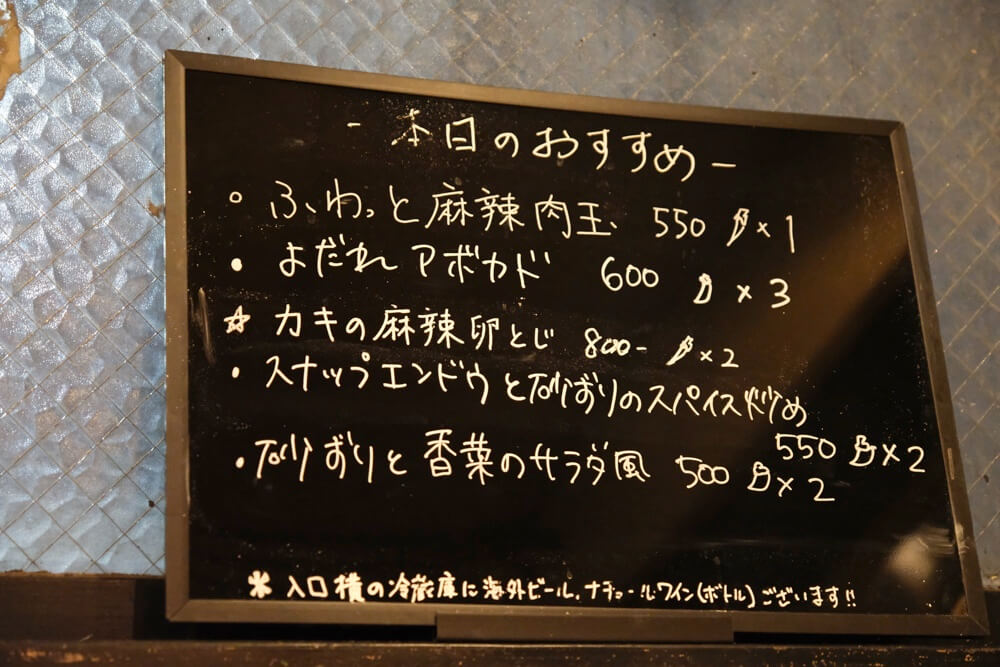 - 本日のおすすめ -
• ふわっと麻辣肉玉 550 × 1
• よだれアボカド 600 × 3
☆ カキの麻辣卵とじ 800- × 2
• スナップエンドウと砂ずりのスパイス炒め
550 × 2
• 砂ずりと香菜のサラダ風 500 × 2
* 入口横の冷蔵庫に海外ビール、ナチュールワイン(ボトル)ございます!!